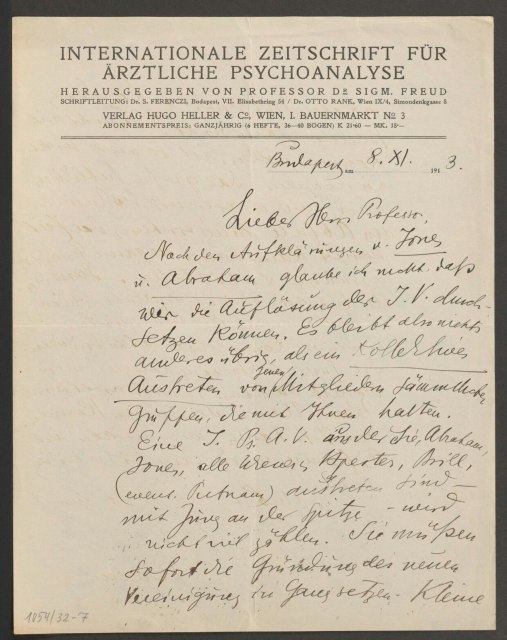 INTERNATIONALE ZEITSCHRIFT FÜR
ÄRZTLICHE PSYCHOANALYSE
HERAUSGEGEBEN VON PROFESSOR DR SIGM. FREUD
SCHRIFTLEITUNG: Dr. S. FERENCZI, Budapest, VII. Elisabethring 54 / Dr. OTTO RANK, Wien IX/4, Simondenkgasse 8
VERLAG HUGO HELLER & Co, WIEN, I. BAUERNMARKT No 3
ABONNEMENTSPREIS: GANZJÄHRIG (6 HEFTE, 36—40 BOGEN) K 21·60 — MK. 18·—
Budapest, am 8. XI. 1913.
Lieber Herr Professor,
Nach den Aufklärungen v. Jones
u. Abraham glaube ich nicht daß
wir die Auflösung der I. V. durch-
setzen können. Es bleibt also nichts
anderes übrig, als ein kollektives
Austreten von jenen Mitgliedern sämmtlicher
Gruppen, die mit Ihnen halten.
Eine I. Ps. A. V. aus der Sie, Abraham,
Jones, alle Wiener, Brill,
(event. Putnam) austreten sind –
mit Jung an der Spitze – wird
nicht viel zählen. Sie müßen
sofort die Gründung der neuen
Vereinigung in Gang setzen. Kleine
1054/32-7